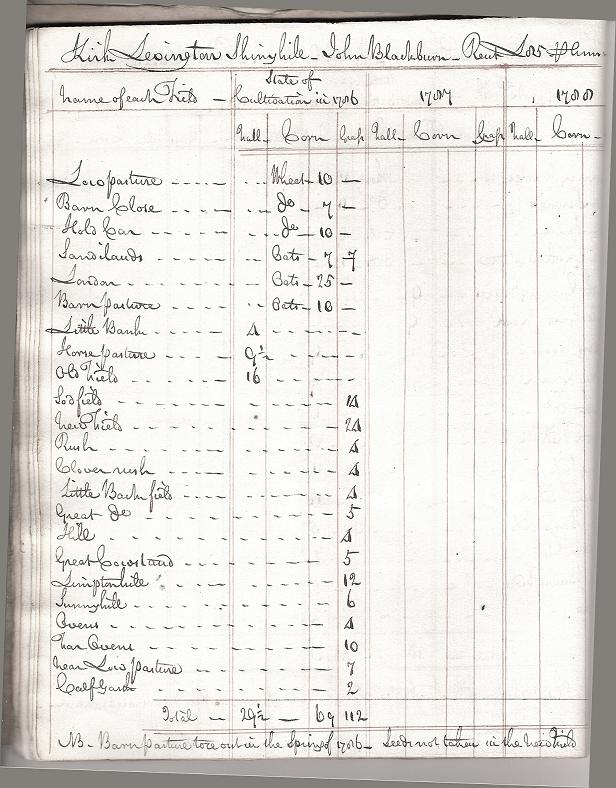 Kirk Levington Shinyhile - John Blackburn - Rent £85 Ann
State of
Name of each Field - Cultivation in 1786 1787 1788
Fall. Corn Grass Fall. Corn Grass Fall. Corn
Low pasture - - - - - .. Wheat - 10 -
Barn Close - - - - .. Do - 7 -
Hold Car - - - - ... Do - 10 -
Sandilands - - - - .. Oats - 7 7
London - - - - - .. Oats - 25 -
Barn pasture - - - - .. Oats - 10 -
Little Bank - - - - 4 - - - - -
Horse pasture - - - - 9½ - - - - -
Old Field - - - - 16 - - - -
Sodfield - - - - - - - - 14
New Field - - - - - - - - 24
Rush - - - - - - - - 4
Clover rush - - - - - - - - 4
Little Back field - - - - - - - 4
Great Do - - - - - - - - 5
Hill - - - - - - - - 4
Great Cowsland - - - - - - - 5
Limptonhile - - - - - - - 12
Sunnyhill - - - - - - - - 6
Ovens - - - - - - - - 4
Far Ovens - - - - - - - 10
Near Low pasture - - - - - - 7
Calf Garth - - - - - - - 2
Total - 29½ - 69 112
NB - Barn pasture tore out in the Spring of 1786 - Seeds not taken in the New Field